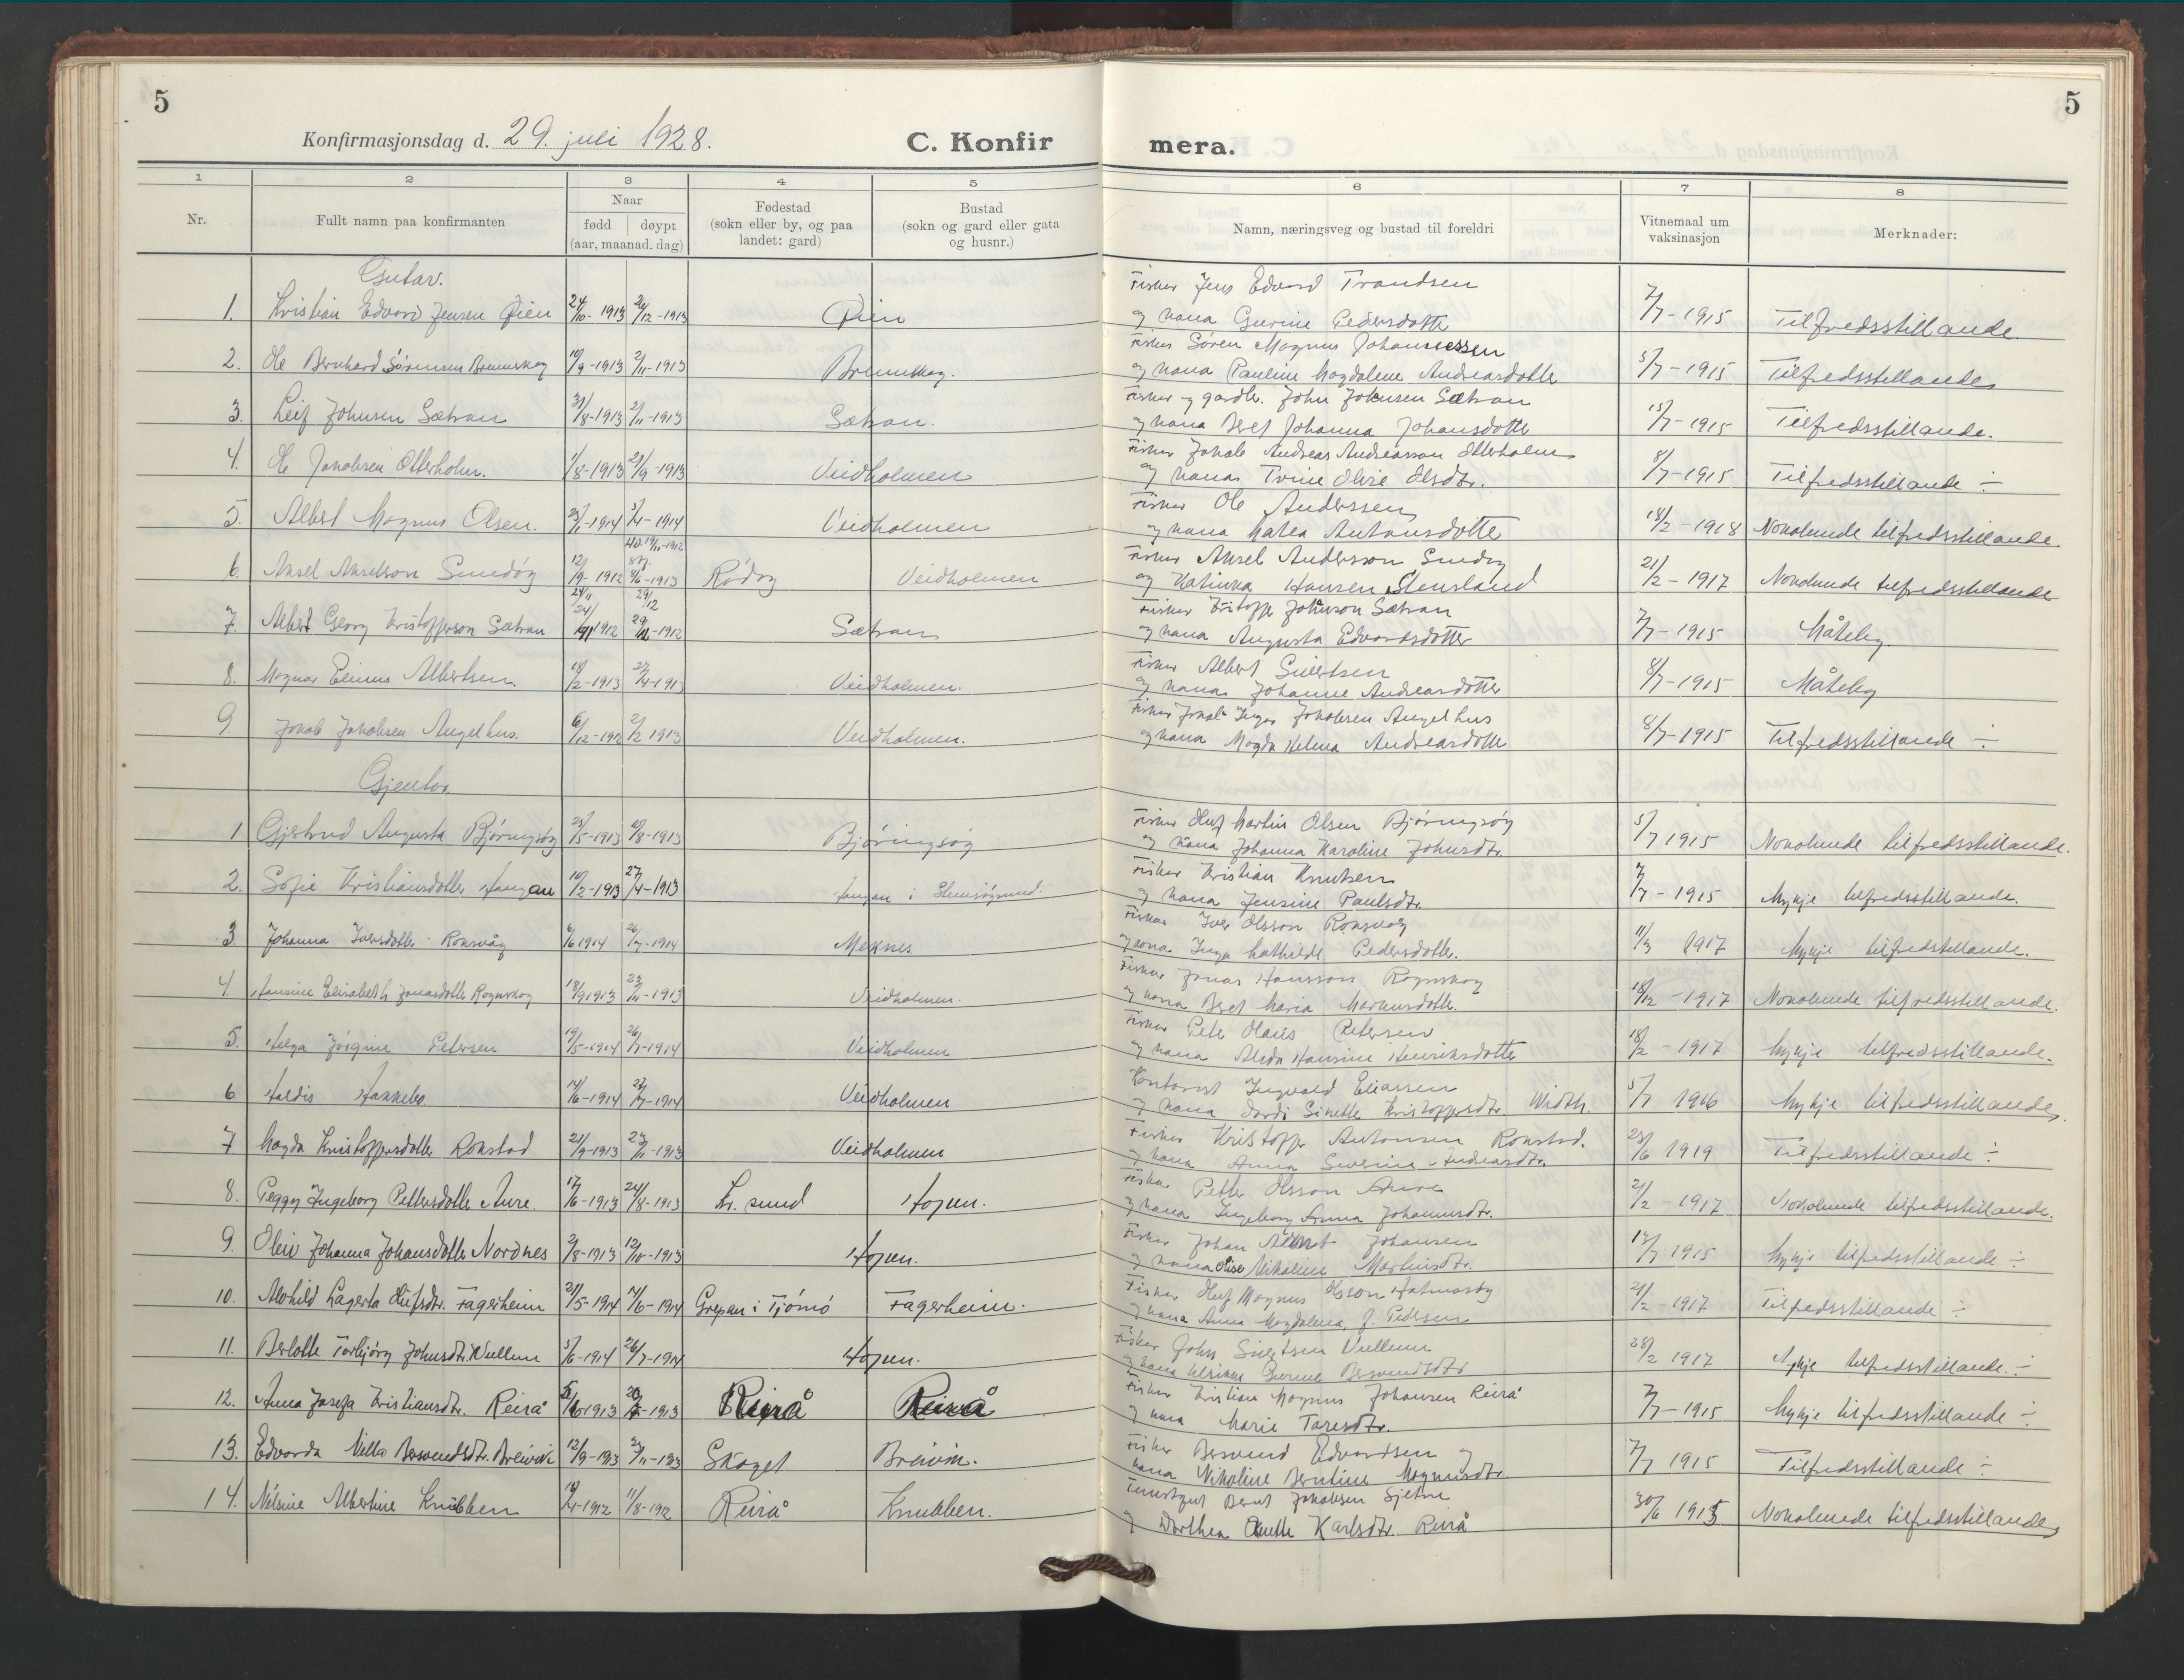 5
5
Konfirmasjonsdag d. 29. juli 1928.
C. Konfir
mera.
1 2 3 4 5 6 7 8
Nr.
Fullt namn paa konfirmanten
Naar
fødd
døypt
(aar, maanad, dag)
Fødestad
(sokn eller by, og paa
landet: gard)
Bustad
(sokn og gard eller gata
og husnr.)
Namn, næringsveg og bustad til foreldri
Vitnemaal um
vaksinasjon
Merknader:
Gutar.
Fisker Jens Edvard Trondsen
1. Kristian Edvard Jensen Øien 24/10-1913 26/12-1913 Øien og kona Gurine Pedersdotter 7/7-1915 Tilfredsstillande
Fisker Søren Magnus Johannessen
2. Ole Bernhard Sørensen Bremskag 10/9-1913 2/11-1913 Bremskag. og kona Pauline Magdalene Andreasdotter 5/7-1915 Tilfredsstillande
Fisker og gardbr. John Johnsen Sætran
3. Leif Johnsen Sætran 31/8-1913 2/11-1913 Sætran. og kona Beret Johanna Johansdotter 15/7-1915 Tilfredsstillande.
Fisker Jakob Andreas Andreassen Otterholm
4. Ole Jakobsen Otterholm. 1/8-1913 21/9-1913 Veidholmen og kona Trine Olise Olsdtr. 8/7-1915 Tilfredsstillande ÷
Fisker Ole Anderssen
5. Albert Magnus Olsen. 23/1-1914 3/4-1914 Veidholmen og kona Matea Antonsdotter 18/2-1918 Nokolunde tilfredsstillande.
Fisker Aksel Andersson Sundøy
6. Aksel Akselson Sundøy 12/9-1912 8/6-1913 Rødøy Veidholmen og Katinka Hansen Stensland 21/2-1917 Nokolunde tilfredsstillande
24/11 29/12
Fisker Kristoffer Johnson Sætran
7. Albert Georg Kristofferson Sætran 1912 1912 Sætran og kona Augusta Edvardsdotter 7/7-1915 Måteleg
Fisker Albert Sivertsen
8. Magnar Elinus Albertsen. 18/2-1913 27/4-1913 Veidholmen. og kona Johanne Andreasdotter 8/7-1915 Måteleg
Fisker Jakob Inger Jakobsen Angelhus
9. Jakob Jakobsen Angelhus. 6/12-1912 2/2 1913 Veidholmen. og kona Magda Helena Andreasdotter 8/7-1915 Tilfredsstillande ÷
Gjentor.
Fisker Oluf Martin Olsen Bjøringsøy
1 Gjertrud Augusta Bjøringsøy 25/5-1913 10/8-1913 Bjøringsøy og kona Johanna Karoline Johnsdtr. 5/7 1915 Nokolunde tilfredsstillande.
Fisker Kristian Knutsen
2. Sofie Kristiansdotter Haugan 10/2-1913 27/4-1913 Haugan i og kona Jensine Paulsdtr. 7/7-1915 Mykje tilfredsstillande.
Fisker Iver Olsson Ronsvåg
3 Johanna Iversdotter Ronsvåg 6/6 1914 26/7-1914 Meknes og kona Inga Mathilde Pedersdotter. 11/3 1917 Mykje tilfredsstillande.
Fisker Jonas Hansson Rognskog
4. Hansine Elisabeth Jonasdotter Rognskog 18/9 1913 23/11-1913 Veidholmen. og kona Beret Maria Markusdotter. 18/12-1917 Nokolunde tilfredsstillande.
Fisker Peter Olaus Petersen
5. Helga Jørgine Petersen 19/5-1914 26/7-1914 Veidholmen og kona Alida Hansine Henriksdotter 18/2-1917 Mykje tilfredsstillande.
Kontorist Ingvald Eliassen
6 Haldis Hakkebo 14/6-1914 27/7-1914 Veidholmen og kona Dordi Sinette Kristoffersdtr. Width. 5/7 1916 Mykje tilfredsstillande.
Fisker Kristoffer Antonsen Rokstad.
7 Magda Kristoffersdotter Rokstad 21/9-1913 23/11-1913 Veidholmen og kona Anna Severine Andreasdtr. 23/6 1919 Tilfredsstillande ÷
Fisker Petter Olsson Aure
8. Peggy Ingeborg Pettersdotter Aure. 17/6-1913 24/8-1913 Kr. sund Hopen. og kona Ingeborg Anna Johannesdtr. 21/2-1917 Nokolunde tilfredsstillande.
Fisker Johan Johansen
9. Oleiv Johanna Johansdotter Nordnes 2/8-1913 12/10-1913 Hopen. og kona Olise Nikoline Martinsdtr. 17/7 1915 Mykje tilfredsstillande ÷
Fisker Oluf Magnus Olsson
10. Alvhild Lagerta Olufsdtr. Fagerheim 21/5-1914 14/6-1914 Grepan i Tjømø Fagerheim. og kona Anna Magdalena, f. Pedersen 21/2-1917 Tilfredsstillande ÷
Fisker John Sivertsen Vullum
11. Berlotte Torbjørg Johnsdtr. Wullum 5/6-1914 26/7-1914 Hopen. og kona Ulrikke Gurine Bersvendsdtr 28/2 1917 Mykje tilfredsstillande. ÷
Fisker Kristian Magnus Johansen Reirå
12. Anna Josefa Kristiansdtr. Reirå 1913 1913 Reirå Reirå og kona Marie Taresdtr. 7/7-1915 Mykje tilfredsstillande ÷
Fisker Bersvend Edvardsen og
13. Edvarda Milla Bersvendsdtr. Breivik 12/9-1913 2/11-1913 Skaget Breivik. kona Nikoline Berntine Magnusdtr. 7/7 1915 Tilfredsstillande ÷
Bernt Jakobsen Sjetne
14. Nilsine Albertine Knubben 19/4-1912 11/8-1912 Reirå Knubben. og Dorthea Anette Karlsdtr. Reirå 30/6 1915 Nokolunde tilfredsstillande